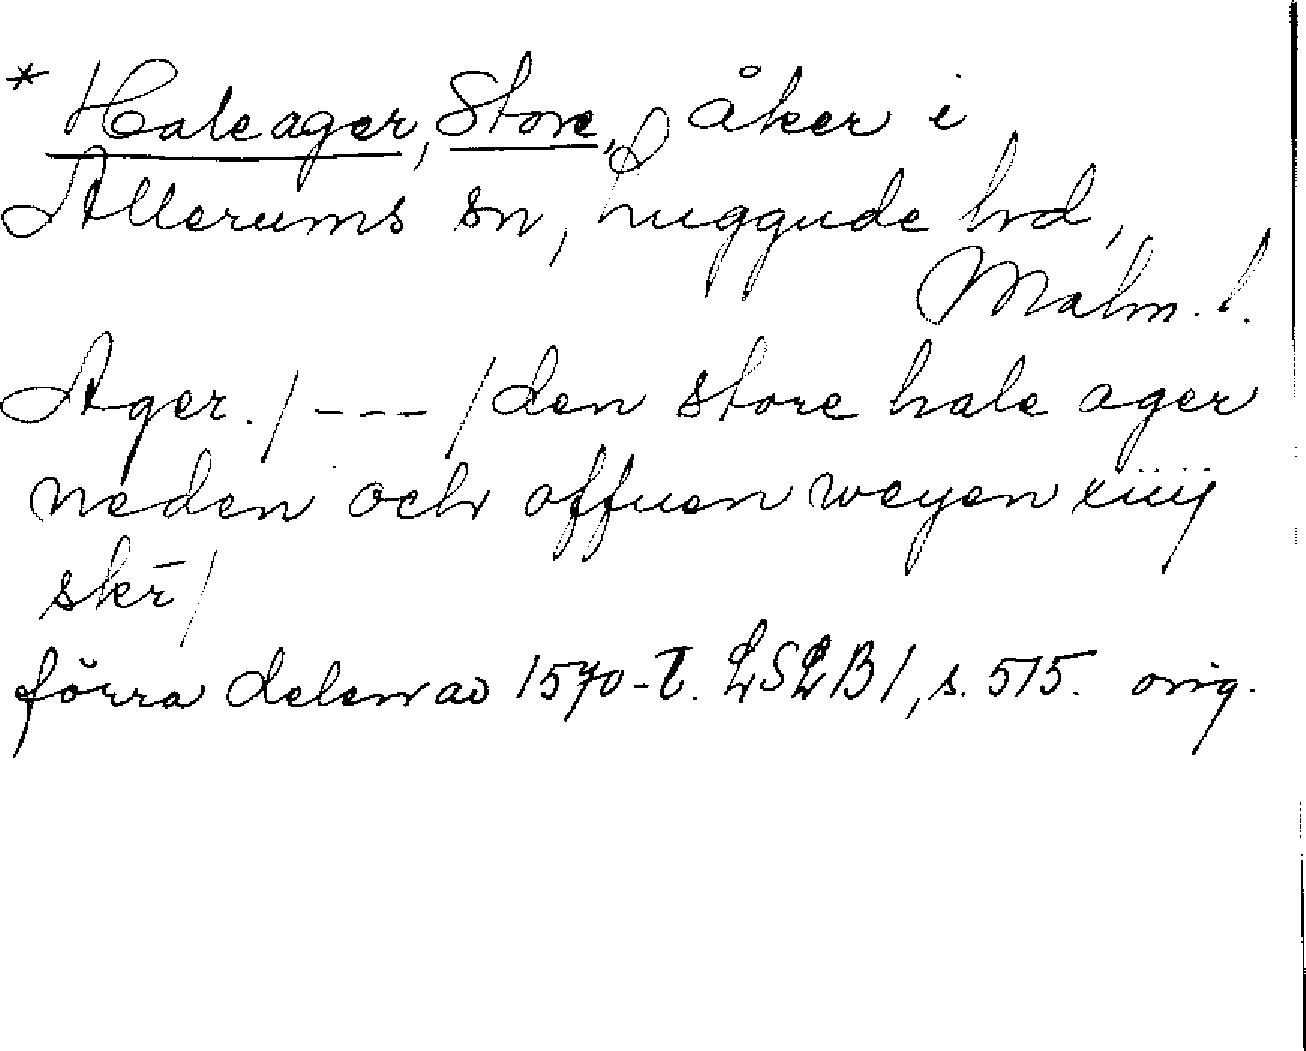 * Haleager, Store, åker i
Allerums sn, Luggude hd,
Malm. l.
Ager. / --- / den store hale ager
neden och offuen weyen xiiij
skr̄ /
förra delen av 1570-t. LSLB1, s. 515. orig.